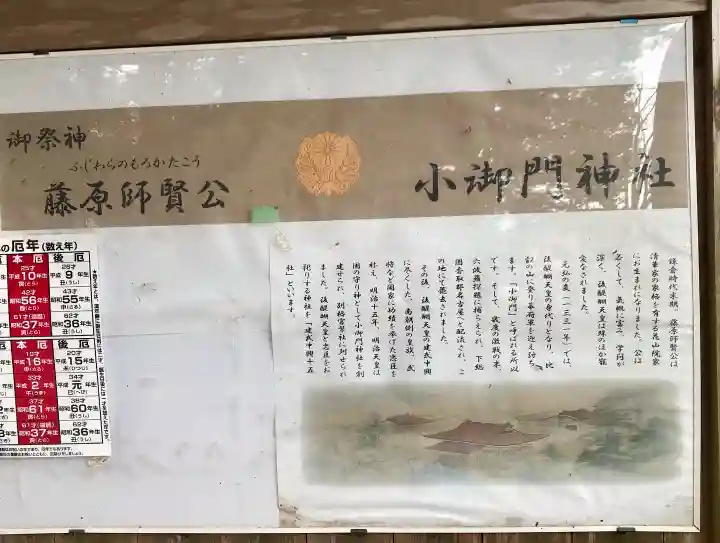 小御門神社
御祭神
ふじわらのもろかたこう
藤原師賢公
鎌倉時代末期、藤原師賢公は
清華家の家格を有する花山院家
にお生まれになりました。公は
若くして、気概に富み、学問が
深く、後醍醐天皇は殊のほか寵
愛なされました。
元弘の変(一三三一年)では、
後醍醐天皇の身代りとなり、比
叡の山に登り幕府軍を迎え討ち
ます。「小御門」と呼ばれる所以
です。そして、数度の激戦の末、
六波羅探題に捕らえられ、下総
国香取郡名古屋へと配流され、こ
の地にて薨去されました。
その後、後醍醐天皇の建武中興
に尽くした、南朝側の皇族、武
将など国家に功績を挙げた忠臣を
社え、明治十五年、明治天皇は
国の守り神として小御門神社を創
建せられ、別格官幣社に列せられ
ました。後醍醐天皇と忠臣をお
祀りする神社を「建武中興十五
社」といいます。
の厄年(数え年)
本厄 後厄
25才 26才
平成10年生 平成9年生
寅(とら) 丑(うし)
42才 43才
昭和56年生 昭和55年生
酉(とり) 申(さる)
61才(還暦) 62才
昭和37年生 昭和36年生
寅(とら) 丑(うし)
本厄 後厄
19才 20才
平成16年生 平成15年生
申(さる) 未(ひつじ)
33才 34才
平成2年生 平成元年生
午(うま) 巳(へび)
37才 38才
昭和61年生 昭和60年生
寅(とら) 丑(うし)
61才(還暦) 62才
昭和37年生 昭和36年生
寅(とら) 丑(うし)